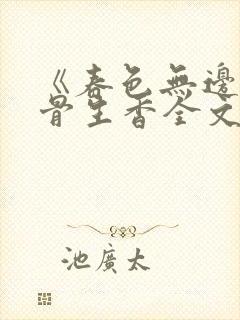 《春色無邊
骨生香全文
池廣太